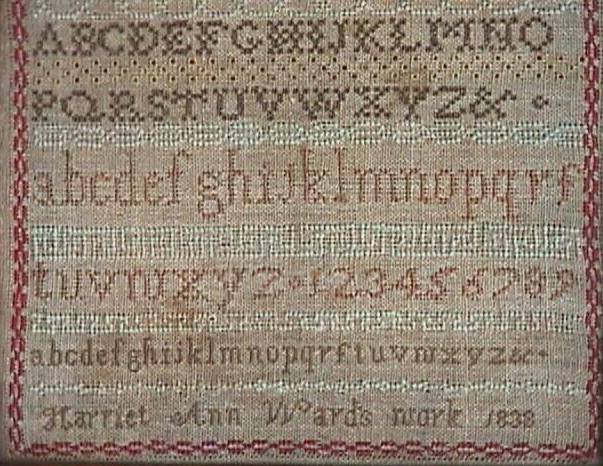 ABCDEFGHIJKLMNO
PQRSTUVWXYZ&
abcdefghijklmnopqrſ
tuvwxyz 123456789
abcdefghijklmnopqrſtuvwxyz&
Harriet Ann Ward's work 1838